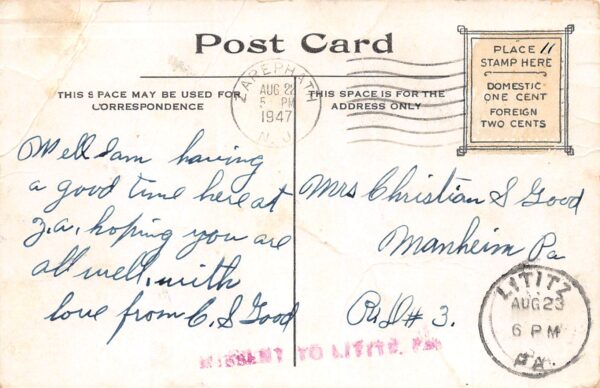 Post Card
THIS SPACE MAY BE USED FOR
CORRESPONDENCE
THIS SPACE IS FOR THE
ADDRESS ONLY
PLACE
STAMP HERE
DOMESTIC
ONE CENT
FOREIGN
TWO CENTS
11
ZAREPHATH
AUG 22
5 PM
1947
N.J.
Well I am having
a good time here at
Z.a. hoping you are
all well, with
love from C. S Good
Mrs Christian S Good
Manheim Pa
R.D# 3.
MISSENT TO LITITZ, PA.
LITITZ
AUG 23
6 PM
PA.